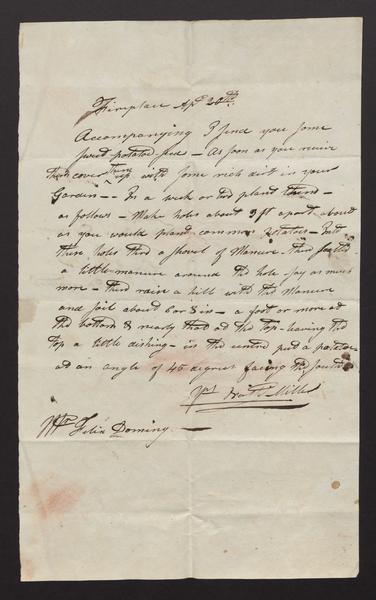 Fireplace Apl 20th.
Accompanying I send you some
sweed potatoe seed – As soon as you receive
them cover them up with some rich dirt in your
Garden – – In a week or two plant them –
as follows – Make holes about 3 ft apart about
as you would plant common Potatoes – Put
these holes third a shovel of Manure – then
a little manure around the hole say as much
more – Then raise a hill with the Manure
and soil about 6 or 8 in – a foot or more at
the bottom & nearly that at the top – having the
top a little dishing – in the center put a potatoe
at an angle of 45 degrees facing the South
Yrs Miller
Mr Felix Dominy. –